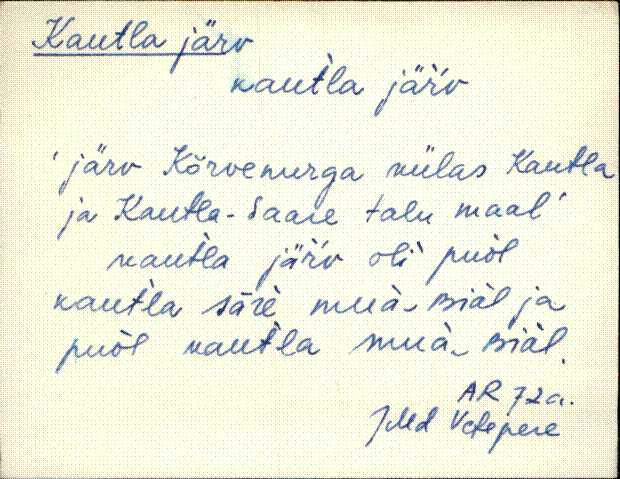 Kautla järv
kaut̀la jäŕv
' järv Kõrvenurga külas Kautla
ja Kautla-Saare talu maal '
kaut̀la jäŕv oli puòl
kaut̀la säre muà piàl ja
puòl kaut̀la muà piàl.
AR 72a.
JMd Vetepere